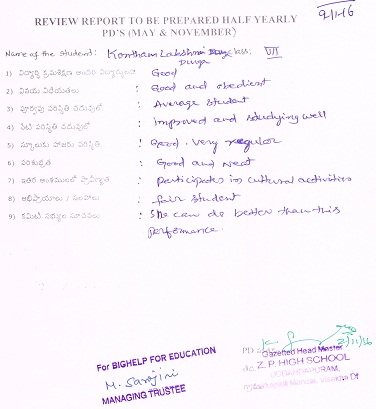 9/1/16
REVIEW REPORT TO BE PREPARED HALF YEARLY
PD'S (MAY & NOVEMBER)
Name of the Student: Kontham Lakshmi Durga Class: VII
1) విద్యార్థి క్రమశిక్షణ Good
2) వినయ విధేయతలు : Good and obedient
3) పూర్వపు పరిస్థితి చదువులో : Average student
4) నేటి పరిస్థితి చదువులో : Improved and studying well
5) స్కూలుకు హాజరు పరిస్థితి : Good. Very regular
6) పరిశుభ్రత : Good and Neat
7) ఇతర అంశములలో ప్రావీణ్యత : Participates in cultural activities
8) అభిప్రాయాలు / సలహాలు : fair student
9) కమిటి సభ్యుల సూచనలు : She can do better than this
performance.
For BIGHELP FOR EDUCATION
M. Sarojini
MANAGING TRUSTEE
PD
Gazetted Head Master
Z. P. HIGH SCHOOL